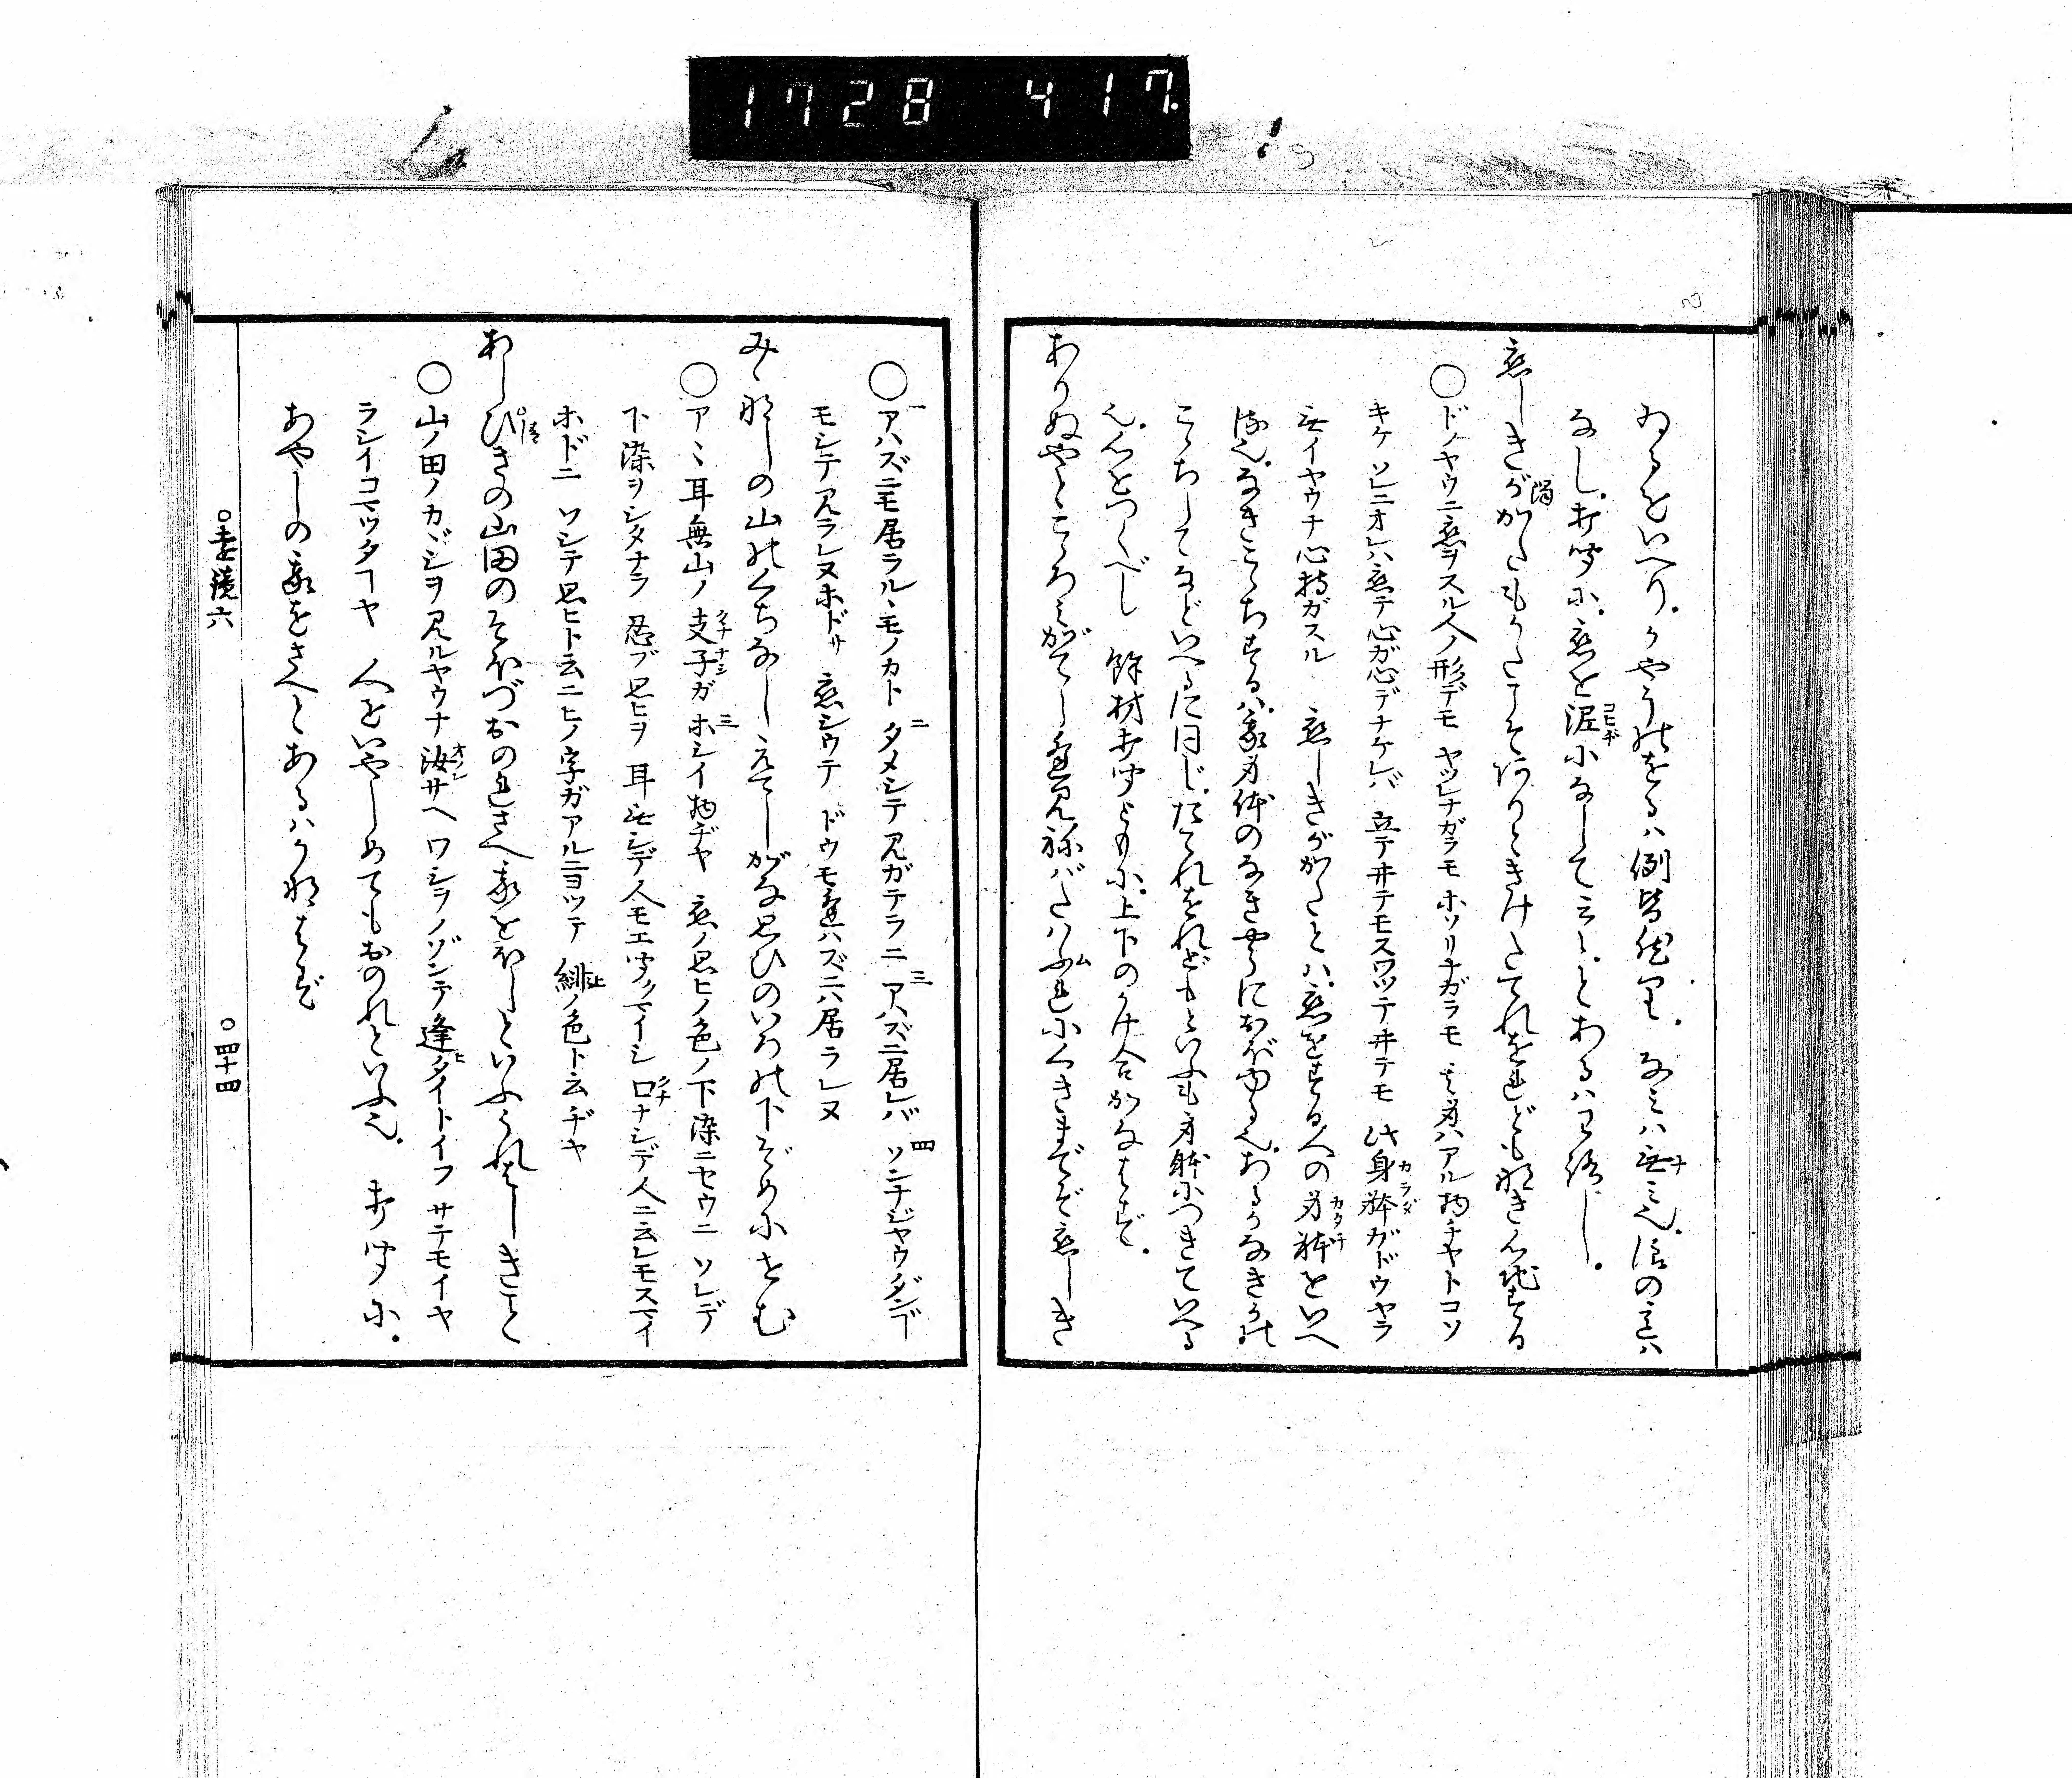 1728 417.
ゐるをいへり。かやうのをるハ例皆然里。なミハ無ミ也。浪の意ハ
なし。打聞に。恋を泥になして云々。とあるハわろし。
恋しきがかたもかたこそ有ときけたてれをれどもなき心地する
○ドノヤウニ恋ヲスル人ノ形デモ ヤツレナガラモ ホソリナガラモ 其身ハアル物ヂヤトコソ
キケ ソレニオレハ恋テ心ガ心デナケレバ 立テヰテモスワツテヰテモ 此身体ガドウヤラ
無イヤウナ心持ガスル 恋しきがかたとハ。恋をする人の身体をいへ
る也。なきこゝちするハ。我身体のなきやうにおぼゆる也。あるかなきかの
こゝちしてなどいへるに同じ。たてれをれどもといふも身体につきていへる
也。心をつくべし 餘材打聞ともに。上下のうけ合かなはず。
ありぬやとこゝろミがてら逢見ねバたハふれにくきまでぞ恋しき
○アハズニモ居ラルヽモノカト タメシテ見ガテラニ アハズニ居レバ ソンナジヤウダンデ
モシテ見ラレヌホドサ 恋シウテ ドウモ逢ハズニハ居ラレヌ
みゝなしの山のくちなしえてしがな思ひのいろの下ぞめにせむ
○アヽ耳無山ノ支子ガホシイ物ヂヤ 恋ノ思ヒノ色ノ下染ニセウニ ソレデ
下染ヲシタナラ 忍ブ思ヒヲ 耳無シデ人モエ聞クマイシ 口ナシデ人ニ云レモスマイ
ホドニ ソシテ思ヒト云ニヒノ字ガアルニヨツテ 緋ノ色ト云ヂヤ
あしひきの山田のそほづおのれさへ我をほしといふうれはしきこと
○山ノ田ノカヾシヲ見ルヤウナ汝サヘ ワシヲノゾンデ逢タイトイフ サテモイヤ
ラシイコマツタコヤ 人をいやしめてもおのれといふ也。 打聞に。
あやしの我をさへとあるハかなはず
○遠鏡六
○四十四